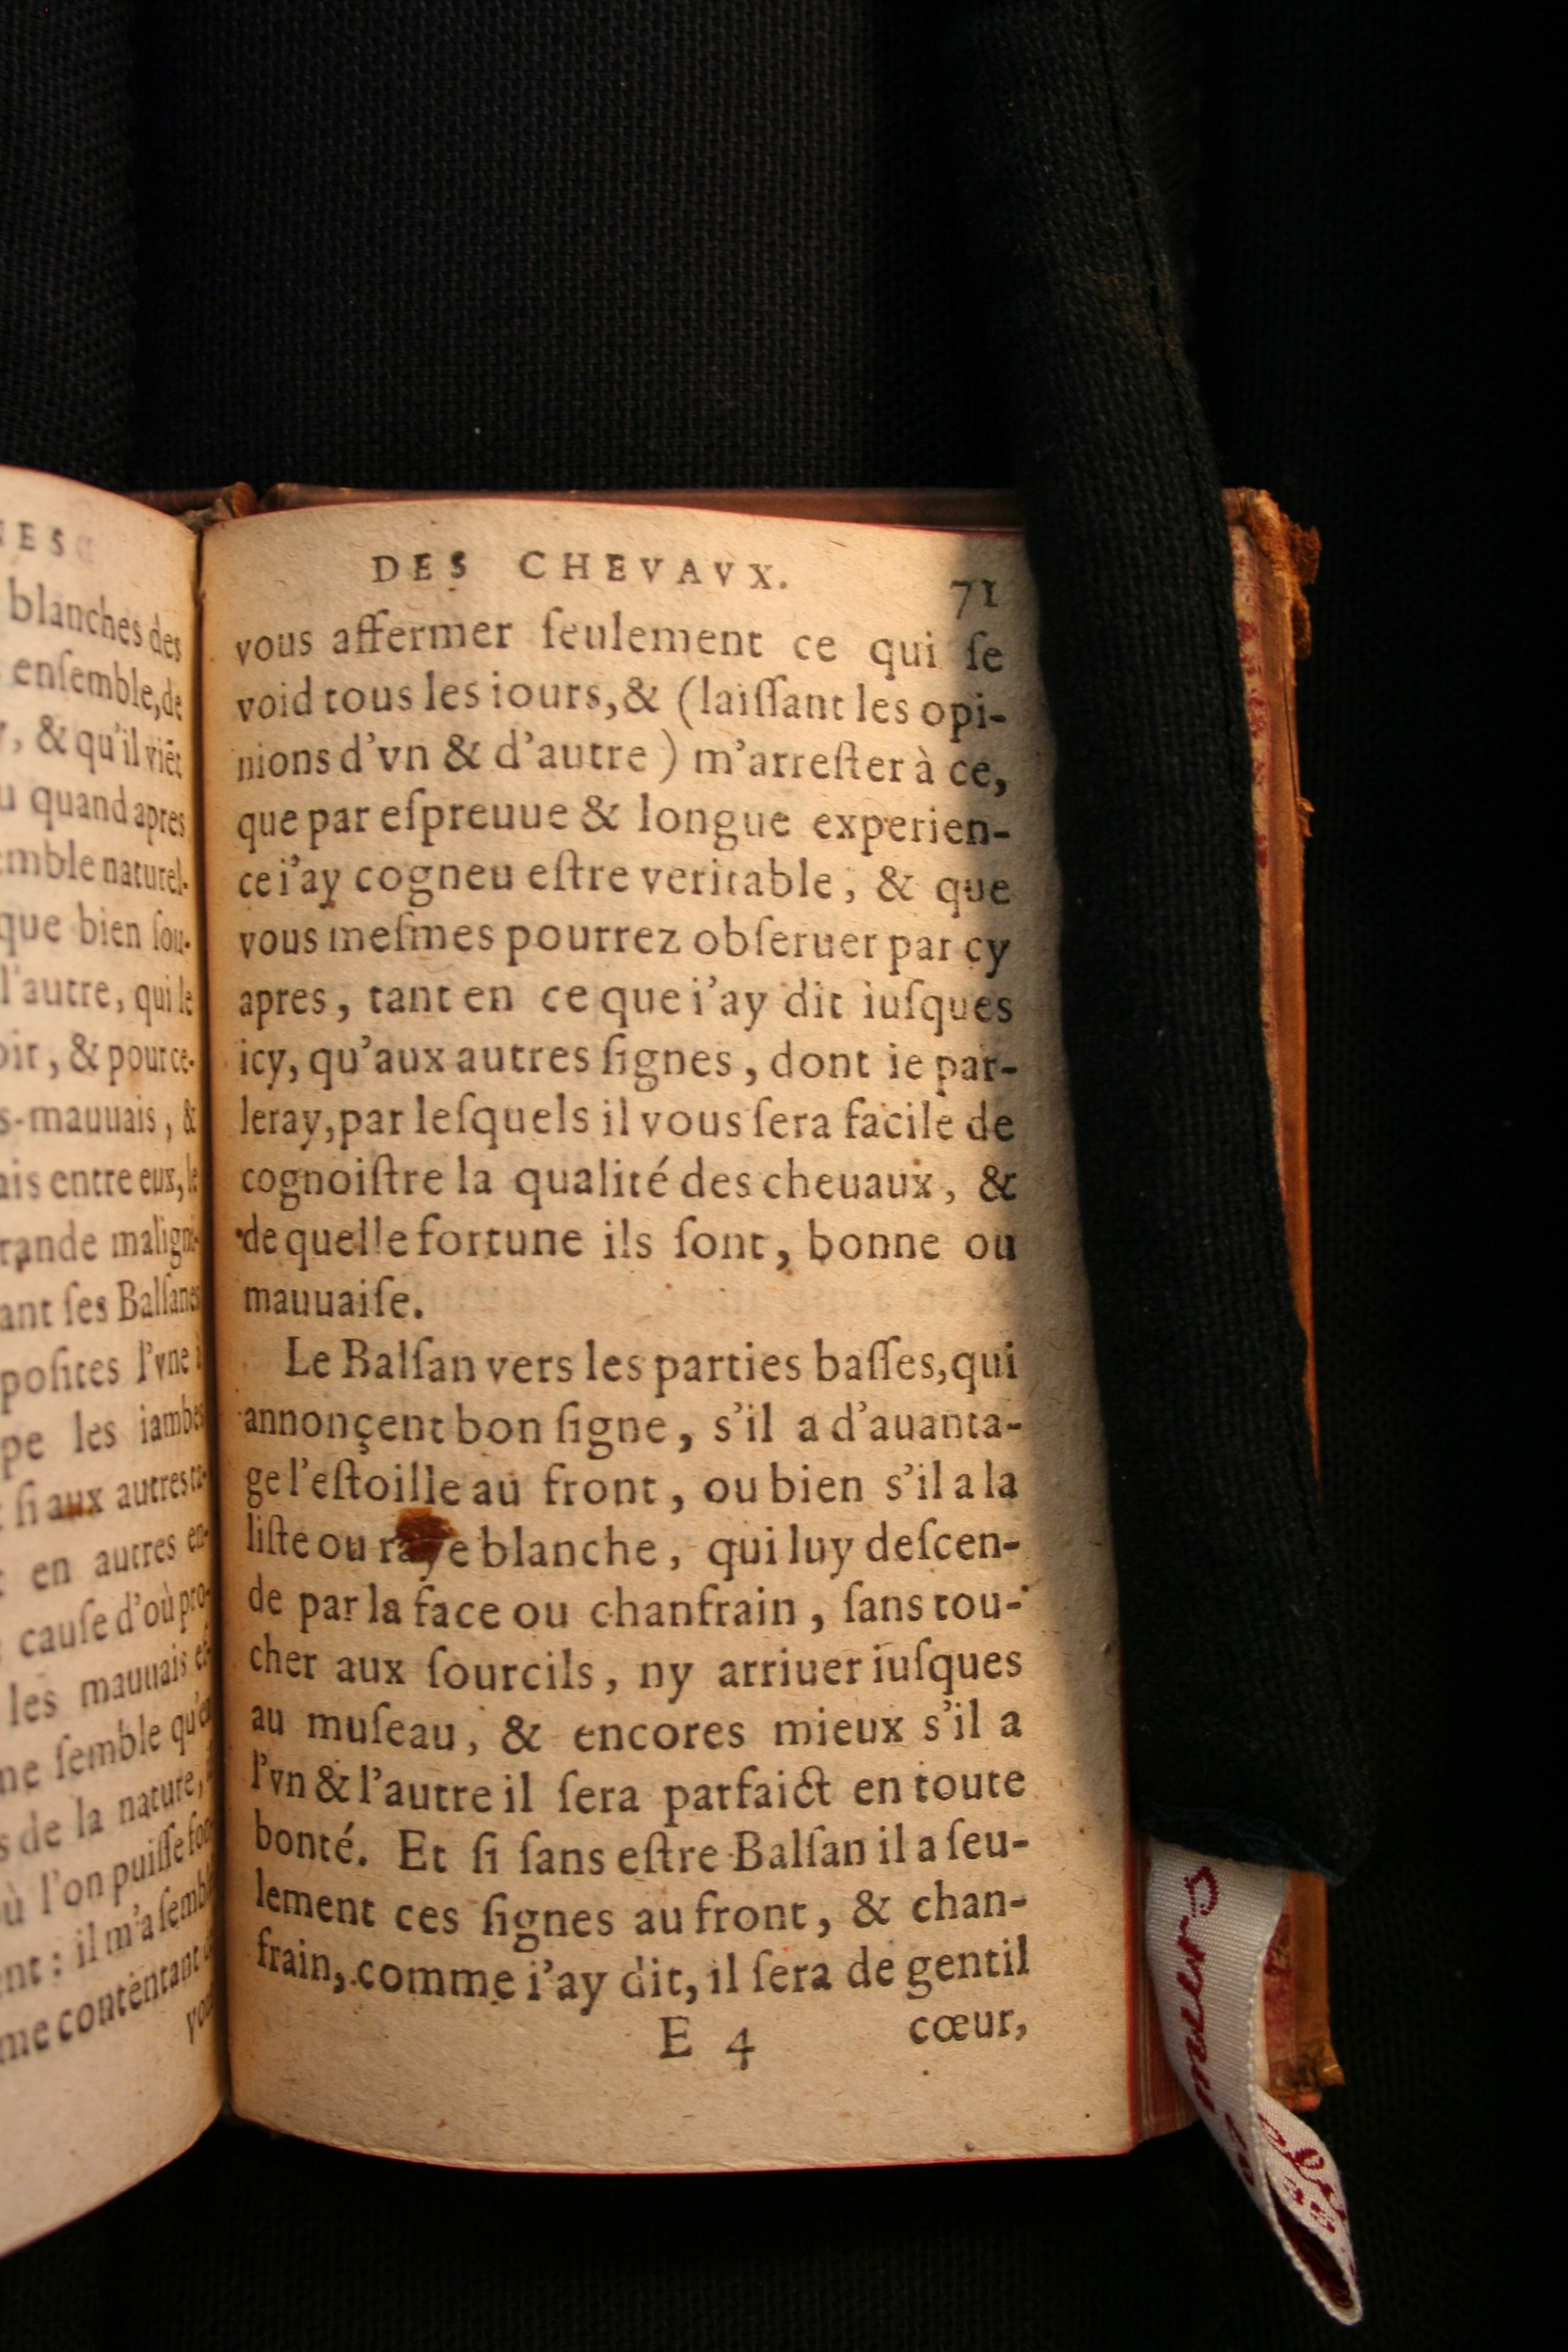 blanches des
enſemble, de
, & qu'il viēt
quand apres
naturel-
que bien ſou-
l'autre, qui le
& pour ce-
mauuais, &
entre eux, le
maligni-
ſes Balſanes
l'vne à
les iambes
ſi aux autres
en autres en-
cauſe d'où pro-
les mauuais
ſemble qu'en
de la nature,
l'on puiſſe
: il m'a ſemblé
me contentant
DES CHEVAVX. 71
vous affermer ſeulement ce qui ſe
void tous les iours, & (laiſſant les opi-
nions d'vn & d'autre) m'arreſter à ce,
que par eſpreuue & longue experien-
ce i'ay cogneu eſtre veritable, & que
vous meſmes pourrez obſeruer par cy
apres, tant en ce que i'ay dit iuſques
icy, qu'aux autres ſignes, dont ie par-
leray, par leſquels il vous ſera facile de
cognoiſtre la qualité des cheuaux, &
de quelle fortune ils ſont, bonne ou
mauuaiſe.
Le Balſan vers les parties baſſes, qui
annonçent bon ſigne, s'il a d'auanta-
ge l'eſtoille au front, ou bien s'il a la
liſte ou raye blanche, qui luy deſcen-
de par la face ou chanfrain, ſans tou-
cher aux ſourcils, ny arriuer iuſques
au muſeau, & encores mieux s'il a
l'vn & l'autre il ſera parfaict en toute
bonté. Et ſi ſans eſtre Balſan il a ſeu-
lement ces ſignes au front, & chan-
frain, comme i'ay dit, il ſera de gentil
E 4 cœur,